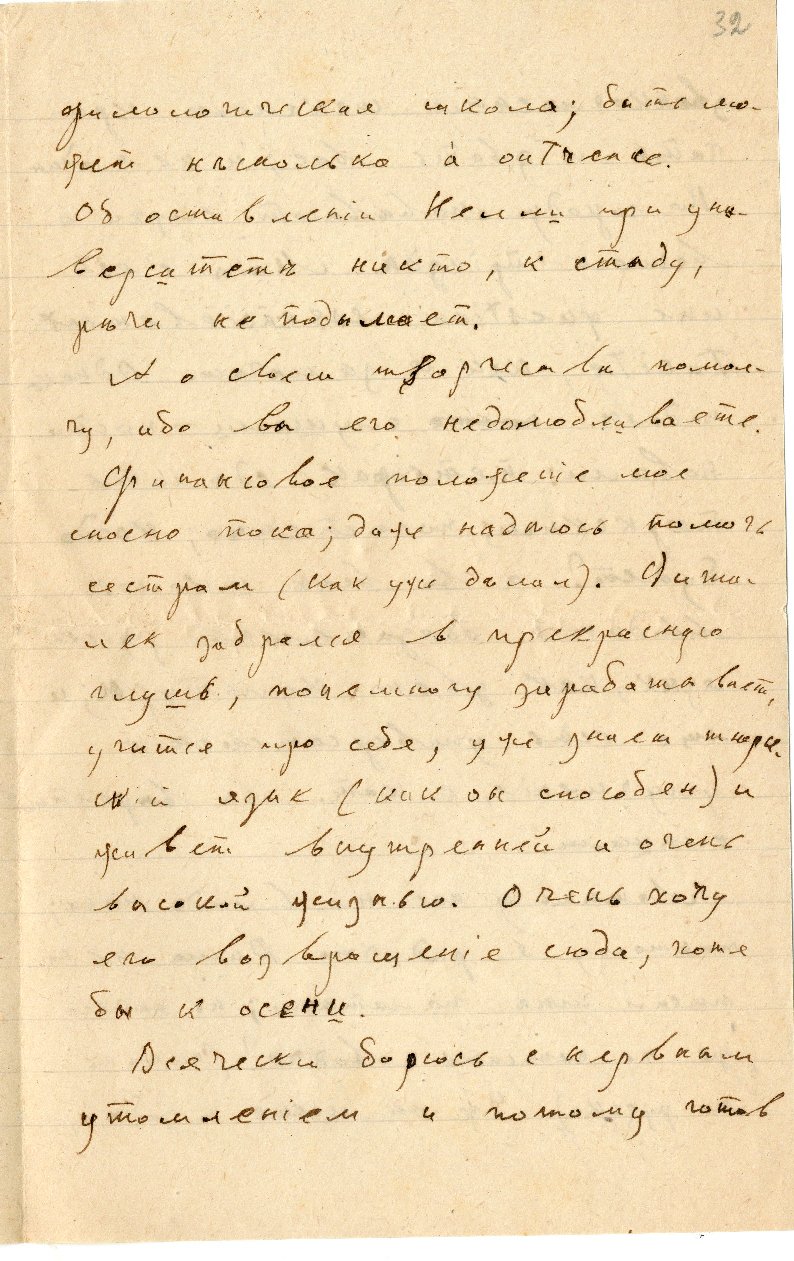 32
филологическая школа; быть мо-
жет нѣсколько à outrance.
Об оставленіи Нелли при уни-
верситетѣ никто, к стыду,
рѣчи не подымает.
А о своем творчествѣ помол-
чу, ибо вы его недолюбливаете.
Финансовое положеніе мое
сносно пока; даже надѣюсь помочь
сестрам (как уже дѣлал).
лек забрался в прекрасную
глушь, понемногу зарабатывает,
учится про себя, уже знает
язык (как он способен) и
живет внутренней и очень
высокой жизнью. Очень хочу
его возвращеніе сюда, хотя
бы к осени.
Всячески борюсь с нервным
утомленіем и потому готов